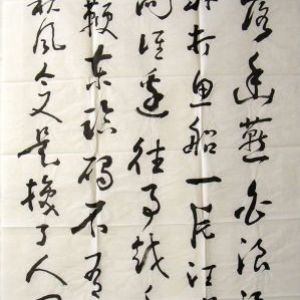 落幽燕白浪滔
外打鱼船一片汪
向谁边往事越千
鞭东临碣石有
秋风今又是换了人